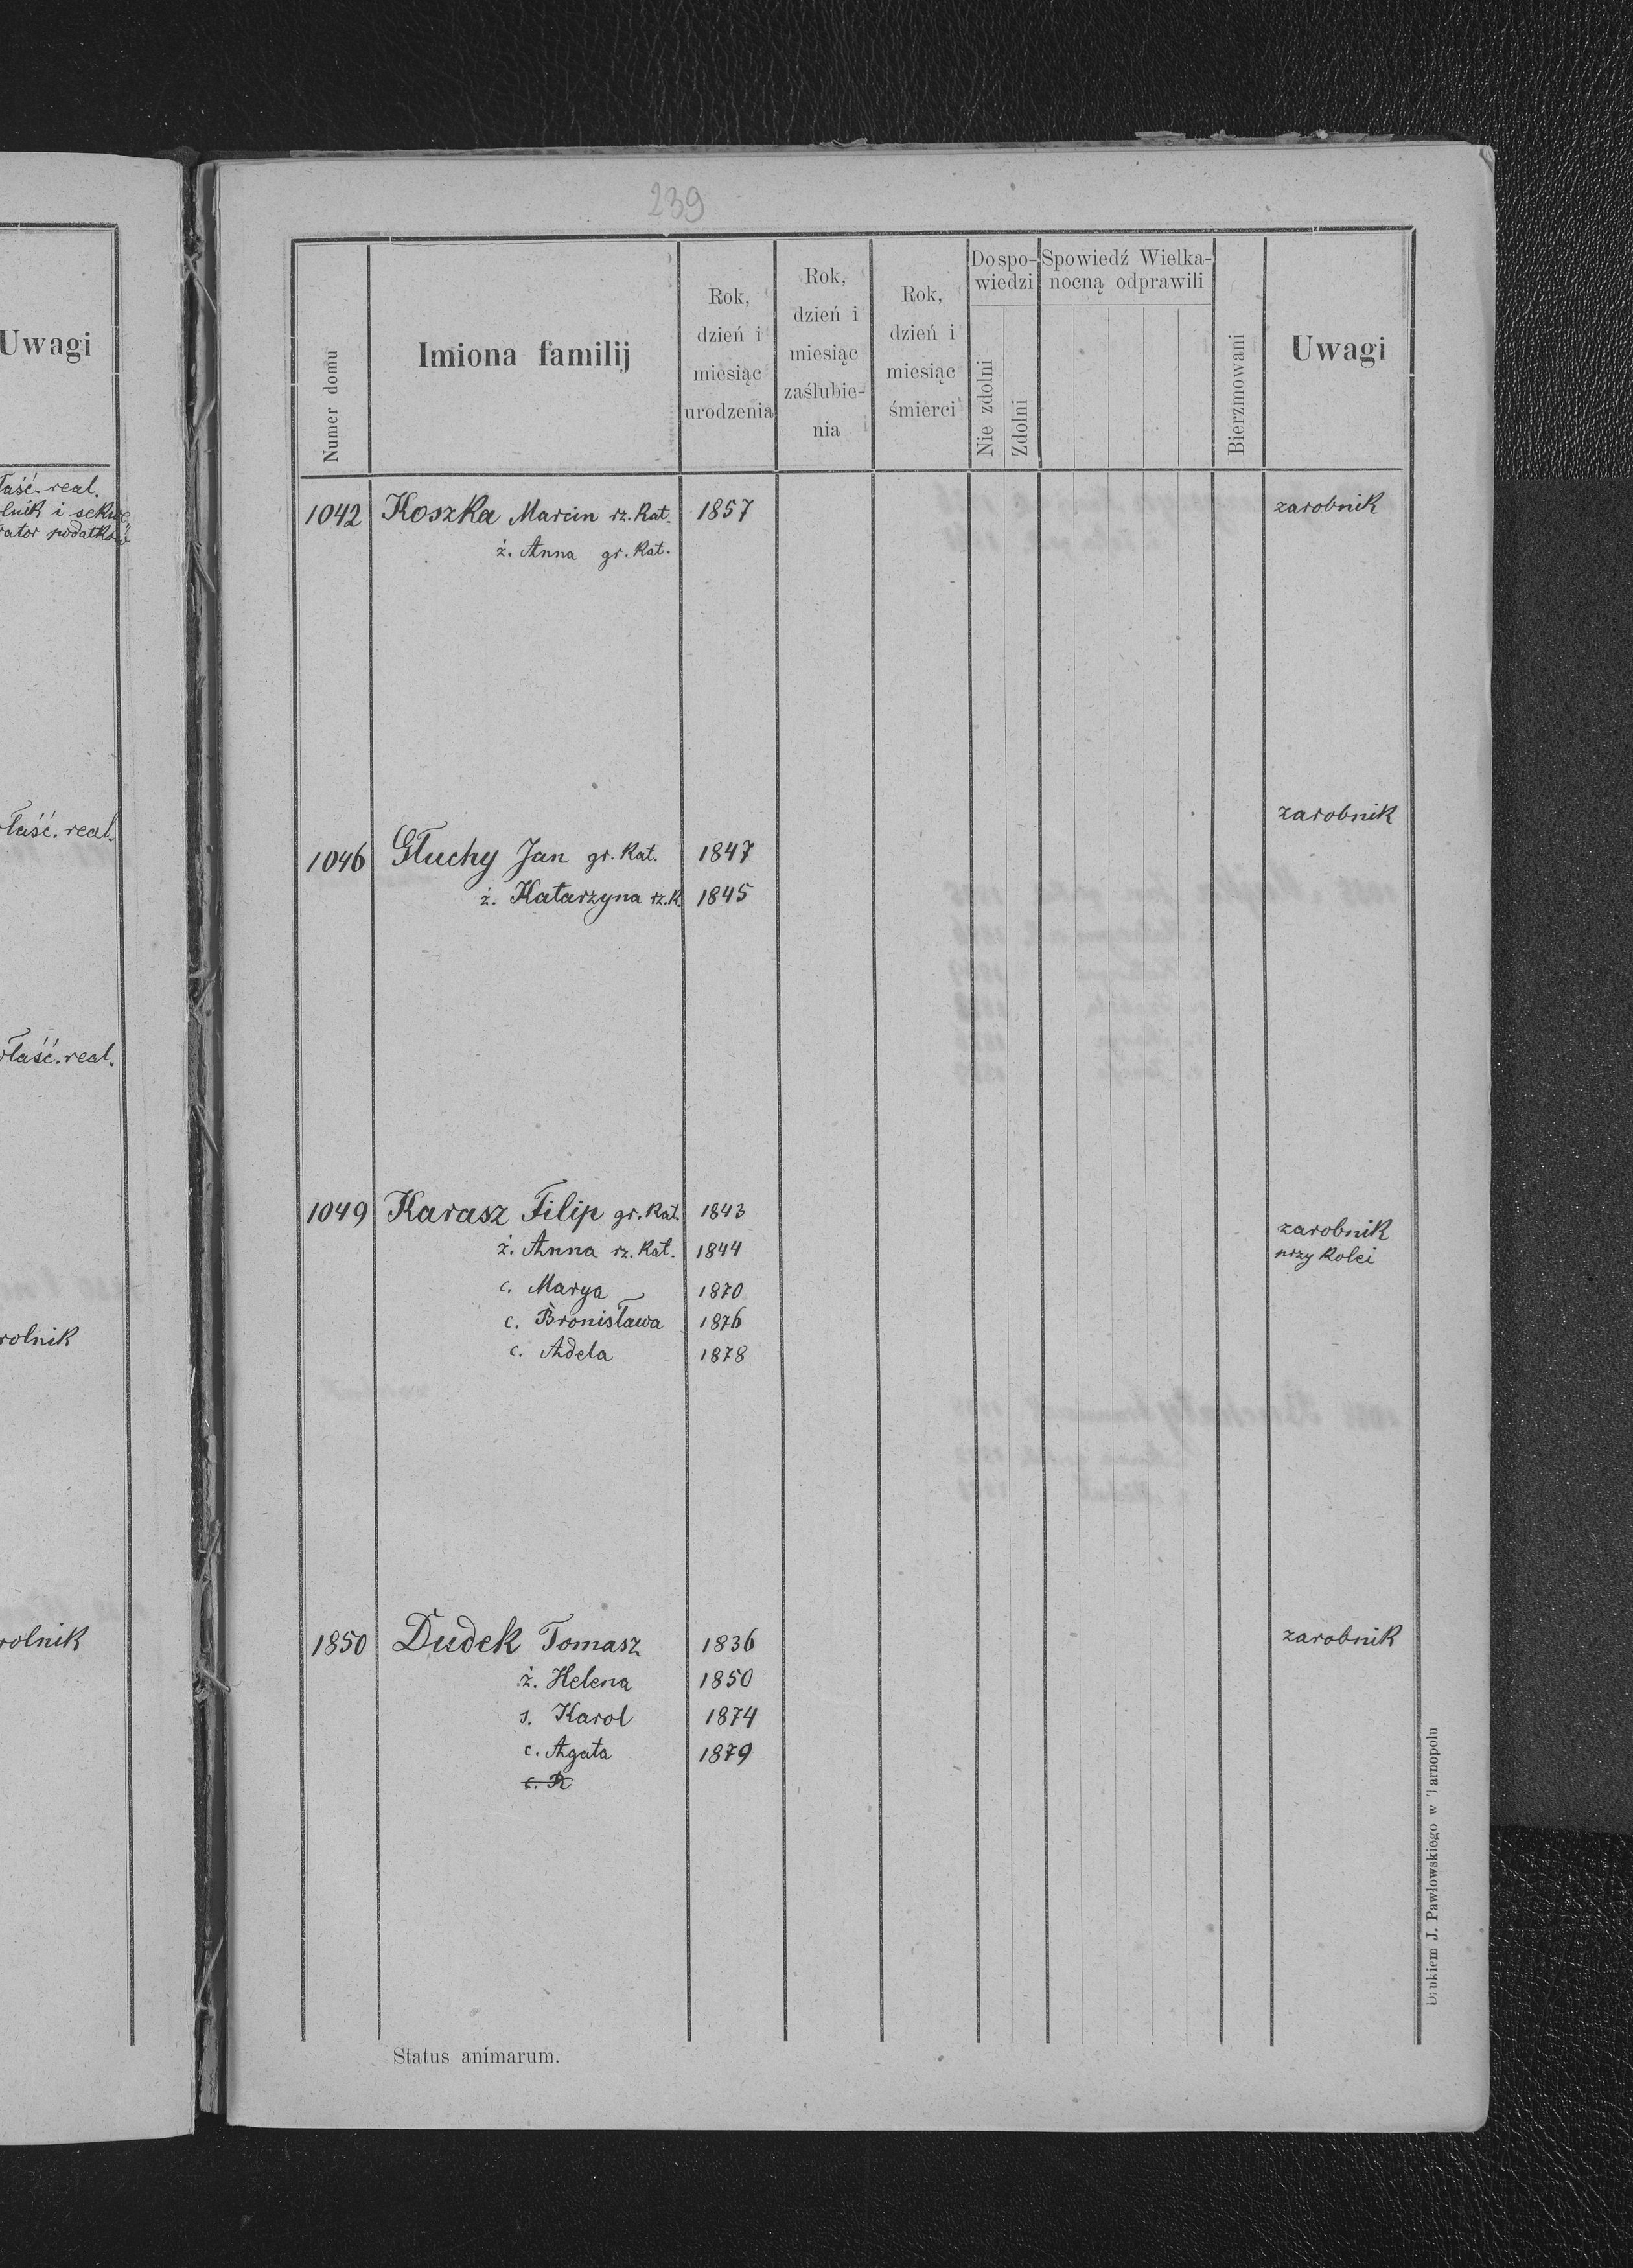 239
Uwagi
real.
i
podatków
właść. real.
właść. real.
rolnik
rolnik
Numer domu
Imiona familij
Rok,
dzień i
miesiąc
urodzenia
Rok,
dzień i
miesiąc
zaślubie-
nia
Rok,
dzień i
miesiąc
śmierci
Do spo-
wiedzi
Nie zdolni
Zdolni
Spowiedź Wielka-
nocną odprawili
Bierzmowani
Uwagi
1042 Koszka Marcin rz. kat. 1857 zarobnik
ż. Anna gr. kat.
zarobnik
1046 Głuchy Jan gr. kat. 1847
ż. Katarzyna rz. k. 1845
1049 Karasz Filip gr. kat. 1843 zarobnik
ż. Anna rz. kat. 1844 przy kolei
c. Marya 1870
c. Bronisława 1876
c. Adela 1878
1850 Dudek Tomasz 1836 zarobnik
ż. Helena 1850
s. Karol 1874
c. Agata 1879
c. R
Status animarum.
Drukiem J. Pawłowskiego w Tarnopolu